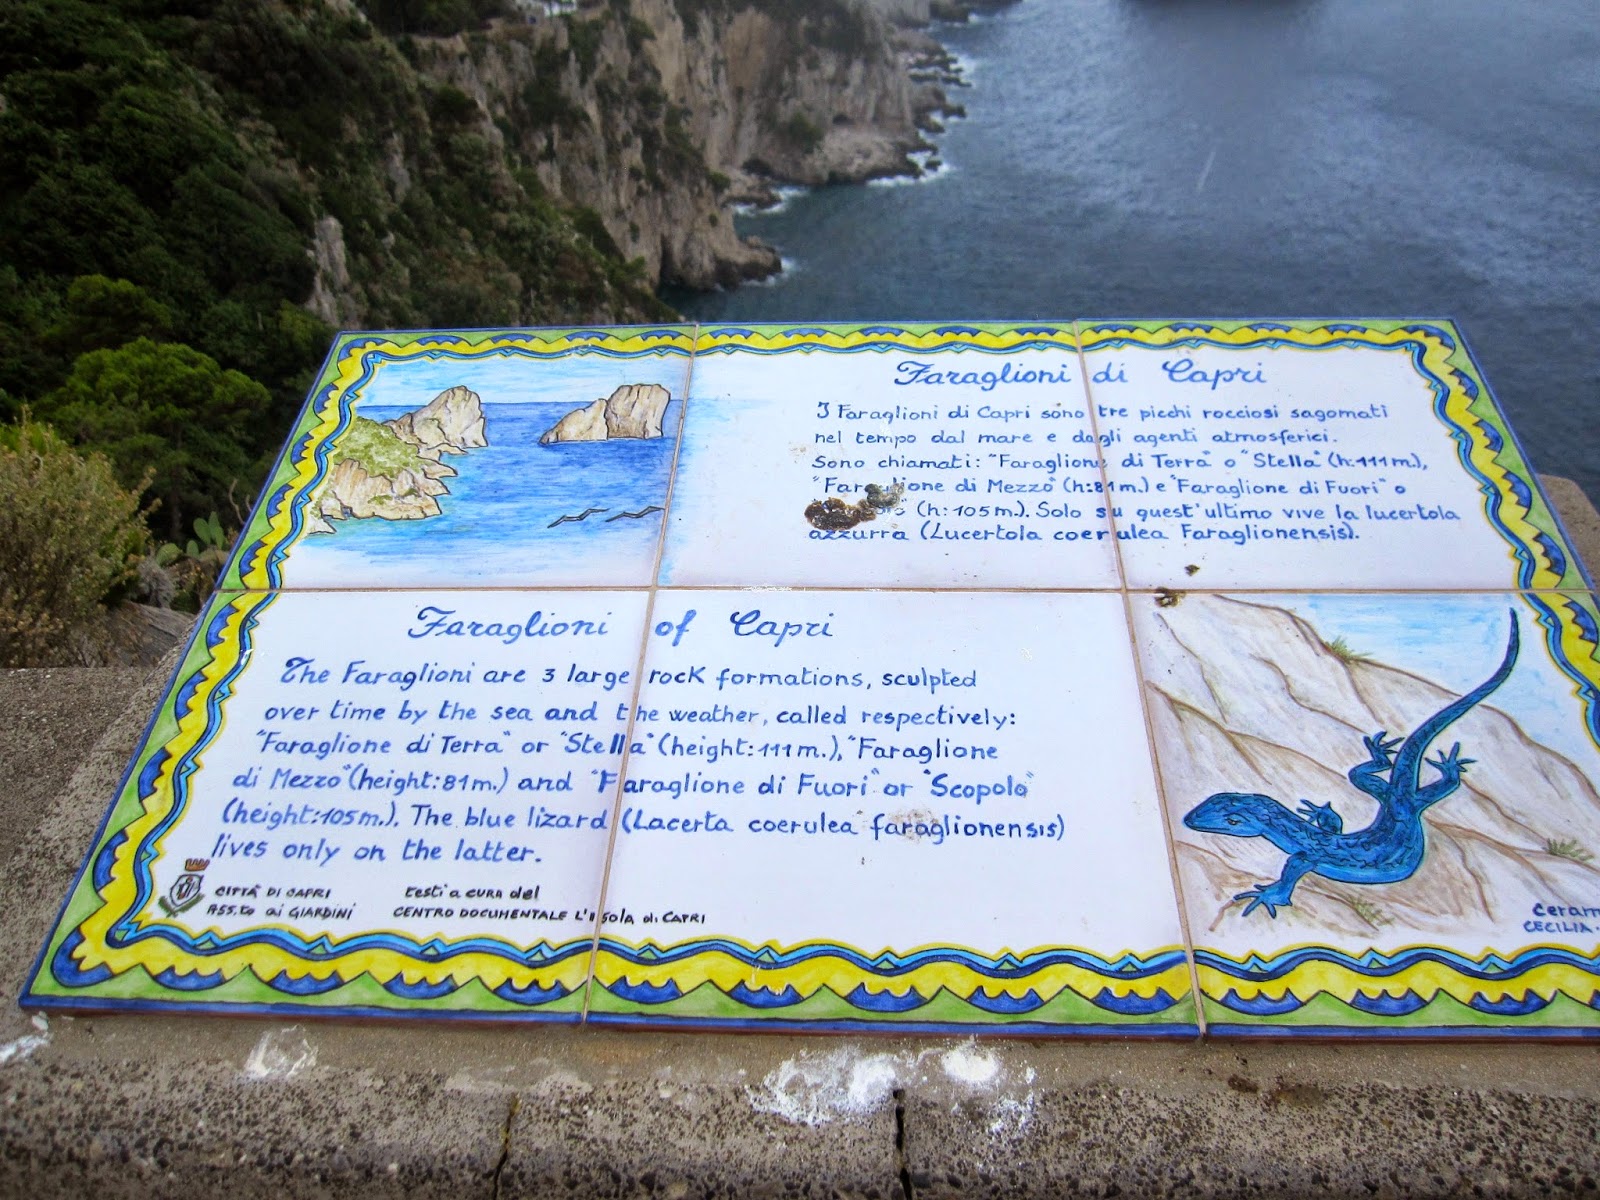 Faraglioni di Capri
I Faraglioni di Capri sono tre picchi rocciosi sagomati
nel tempo dal mare e dagli agenti atmosferici.
Sono chiamati: "Faraglione di Terra" o "Stella" (h:111m.),
"Faraglione di Mezzo" (h:81m.) e "Faraglione di Fuori" o
(h:105m.). Solo su quest'ultimo vive la lucertola
azzurra (Lucertola coerulea Faraglionensis).
Faraglioni of Capri
The Faraglioni are 3 large rock formations, sculpted
over time by the sea and the weather, called respectively:
"Faraglione di Terra" or "Stella" (height:111m.), "Faraglione
di Mezzo" (height:81m.) and "Faraglione di Fuori" or "Scopolo"
(height:105m.). The blue lizard (Lacerta coerulea faraglionensis)
lives only on the latter.
CITTA' DI CAPRI
ASS.to ai GIARDINI
testi a cura del
CENTRO DOCUMENTALE L'ISola di CAPRI
CECILIA